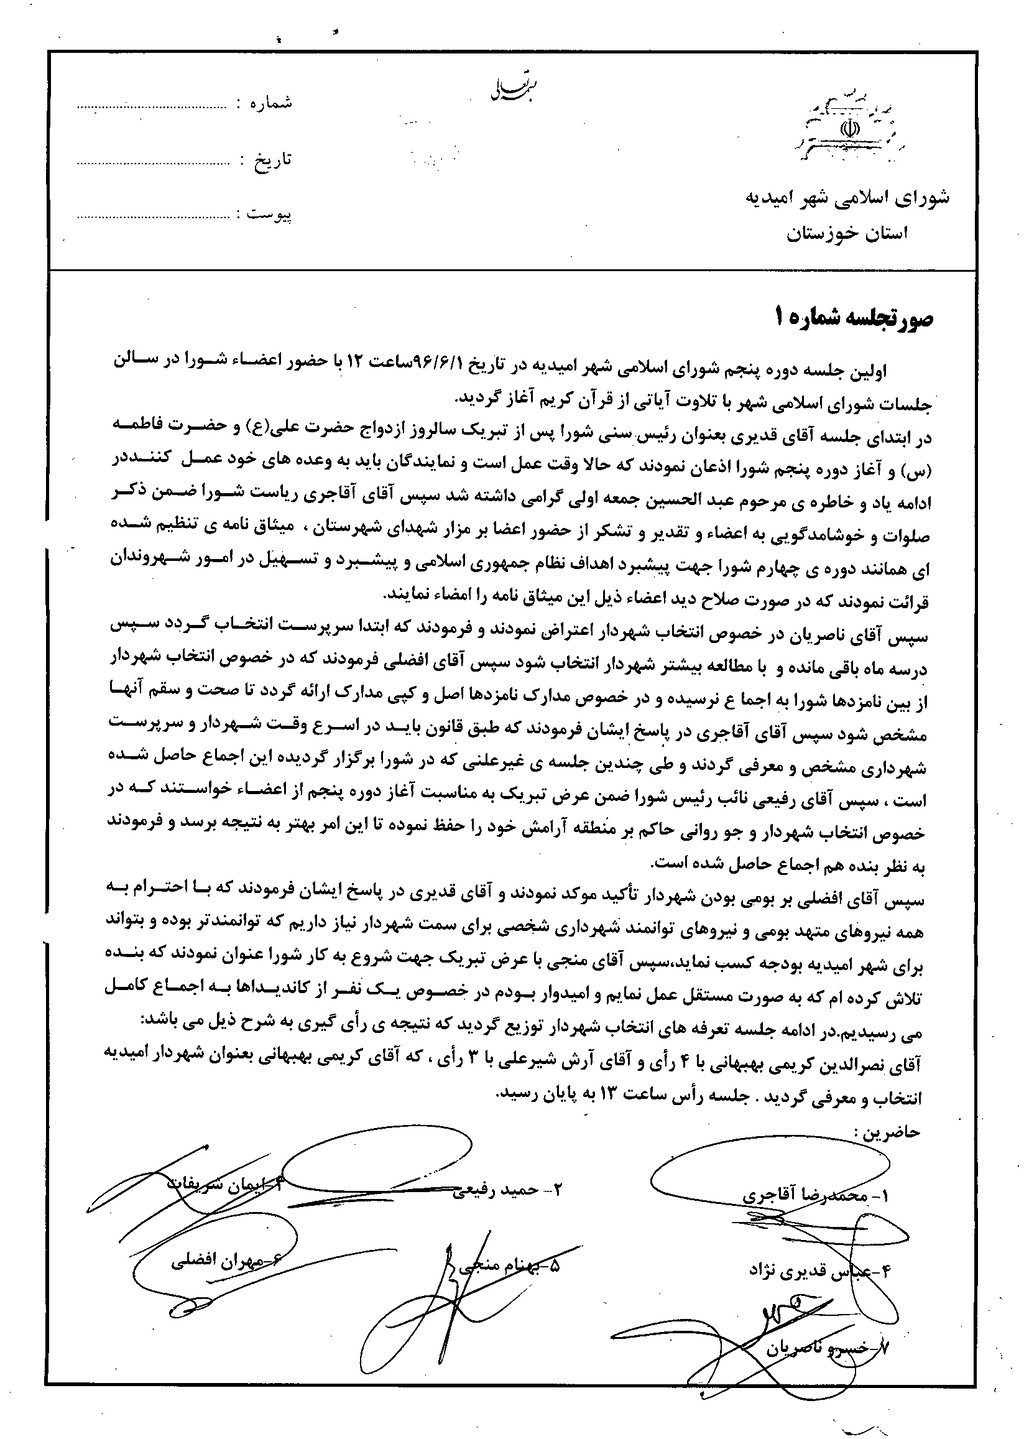 بسمه تعالی
شماره : ......................................
تاریخ : ......................................
پیوست : ......................................
شورای اسلامی شهر امیدیه
استان خوزستان
صورتجلسه شماره ۱
اولین جلسه دوره پنجم شورای اسلامی شهر امیدیه در تاریخ ۹۶/۶/۱ساعت ۱۲ با حضور اعضاء شورا در سالن
جلسات شورای اسلامی شهر با تلاوت آیاتی از قرآن کریم آغاز گردید.
در ابتدای جلسه آقای قدیری بعنوان رئیس سنی شورا پس از تبریک سالروز ازدواج حضرت علی(ع) و حضرت فاطمه
(س) و آغاز دوره پنجم شورا اذعان نمودند که حالا وقت عمل است و نمایندگان باید به وعده های خود عمل کننددر
ادامه یاد و خاطره ی مرحوم عبد الحسین جمعه اولی گرامی داشته شد سپس آقای آقاجری ریاست شورا ضمن ذکر
صلوات و خوشامدگویی به اعضاء و تقدیر و تشکر از حضور اعضا بر مزار شهدای شهرستان ، میثاق نامه ی تنظیم شده
ای همانند دوره ی چهارم شورا جهت پیشبرد اهداف نظام جمهوری اسلامی و پیشبرد و تسهیل در امور شهروندان
قرائت نمودند که در صورت صلاح دید اعضاء ذیل این میثاق نامه را امضاء نمایند.
سپس آقای ناصریان در خصوص انتخاب شهردار اعتراض نمودند و فرمودند که ابتدا سرپرست انتخاب گردد سپس
درسه ماه باقی مانده و با مطالعه بیشتر شهردار انتخاب شود سپس آقای افضلی فرمودند که در خصوص انتخاب شهردار
از بین نامزدها شورا به اجما ع نرسیده و در خصوص مدارک نامزدها اصل و کپی مدارک ارائه گردد تا صحت و سقم آنها
مشخص شود سپس آقای آقاجری در پاسخ ایشان فرمودند که طبق قانون باید در اسرع وقت شهردار و سرپرست
شهرداری مشخص و معرفی گردند و طی چندین جلسه ی غیرعلنی که در شورا برگزار گردیده این اجماع حاصل شده
است ، سپس آقای رفیعی نائب رئیس شورا ضمن عرض تبریک به مناسبت آغاز دوره پنجم از اعضاء خواستند که در
خصوص انتخاب شهردار و جو روانی حاکم بر منطقه آرامش خود را حفظ نموده تا این امر بهتر به نتیجه برسد و فرمودند
به نظر بنده هم اجماع حاصل شده است.
سپس آقای افضلی بر بومی بودن شهردار تأکید موکد نمودند و آقای قدیری در پاسخ ایشان فرمودند که با احترام به
همه نیروهای متهد بومی و نیروهای توانمند شهرداری شخصی برای سمت شهردار نیاز داریم که توانمندتر بوده و بتواند
برای شهر امیدیه بودجه کسب نماید،سپس آقای منجی با عرض تبریک جهت شروع به کار شورا عنوان نمودند که بنده
تلاش کرده ام که به صورت مستقل عمل نمایم و امیدوار بودم در خصوص یک نفر از کاندیداها به اجماع کامل
می رسیدیم.در ادامه جلسه تعرفه های انتخاب شهردار توزیع گردید که نتیجه ی رأی گیری به شرح ذیل می باشد:
آقای نصرالدین کریمی بهبهانی با ۴ رأی و آقای آرش شیرعلی با ۳ رأی ، که آقای کریمی بهبهانی بعنوان شهردار امیدیه
انتخاب و معرفی گردید . جلسه رأس ساعت ۱۳ به پایان رسید.
حاضرین :
۱- محمدرضا آقاجری ۲- حمید رفیعی ۳-ایمان شریفات
۴-عباس قدیری نژاد ۵-بهنام منجی ۶-مهران افضلی
۷-خسرو ناصریان